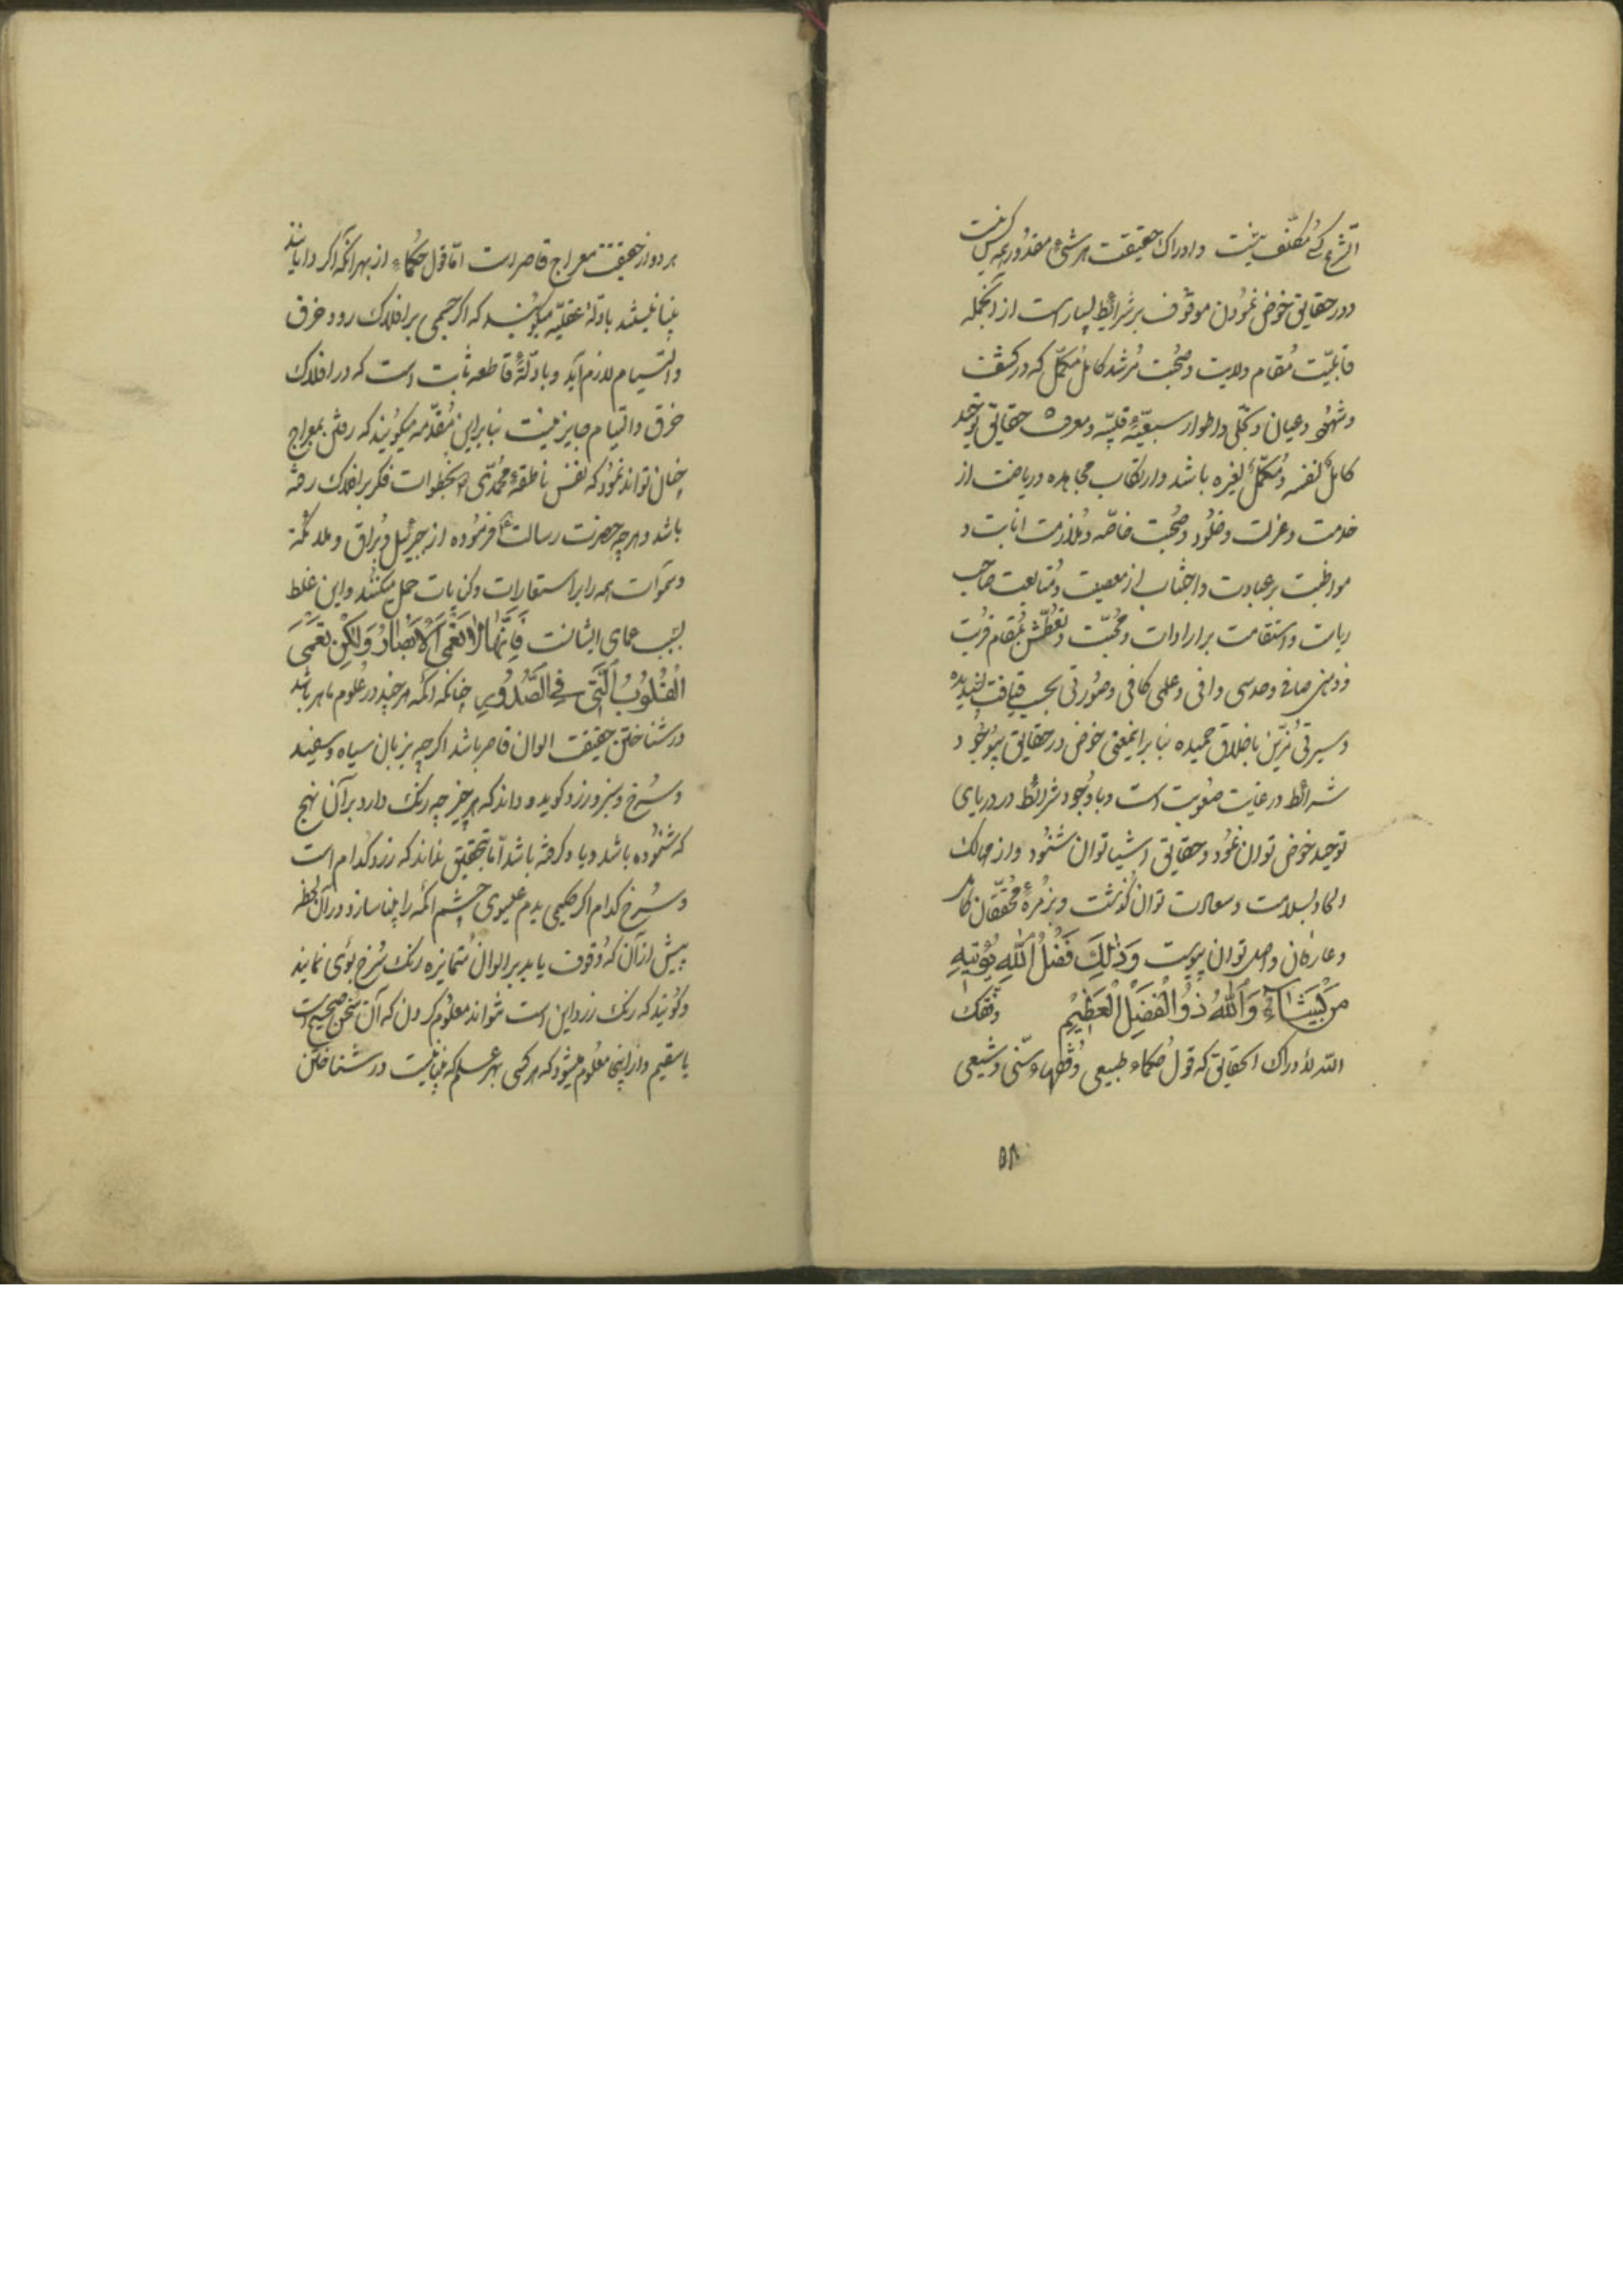 الشرع کسی مکلف نیست و ادراک حقیقت هر شیء مقدور همه کس نیست
و در حقایق خوض نمودن موقوف بر شرائط بسیار است از آنجمله
قابلیّت مقام ولایت و صُحبت مُرشد کامل مُکمّل که در کشف
و شهود و عیان و تجلّی و اطوار سبعیّهٔ قلبیّه و معرفة حقایق توحید
کاملٌ لنفسه و مُکمّلٌ لغیره باشد و ارتکاب مجاهده و ریاضت از
خدمت و عزلت و خلود و صُحبت خاصّه و مُلازمت انابت و
مواظبت بر عبادت و اجتناب از معصیت و مُتابعت صاحب
ریات و استقامت بر ارادات و مُحبّت و تعطّش بمُقام قُربت
و ذهنی صافی و حدسی وافی و علمی کافی و صُورتی بحسب قیافت پسندیده
و سیرتی مُزیّن باخلاق حمیده بنابراینمعنی خوض در حقایق بیوُجُود
شرائط در غایت صعُوبت است و با وُجود شرائط در دریای
توحید خوض توان نمُود و حقایق اشیا توان شنُود و از مهالک
الحاد بسلامت و سعادت توان گُذشت و بزُمرهٔ مُحقّقان کامل
و عارفان واصل توان پیوست وَذٰلِكَ فَضْلُ اللّٰهِ يُؤْتِيهِ
مَنْ يَشَاۤءُ وَاللّٰهُ ذُو الْفَضْلِ الْعَظِيمِ وفّقک
اللّه لأدراک الحقایق که قول حُکماء طبیعی و فُقهاء سنّی و شیعی
۵۸
هر دو از حقیقة معراج قاصر است امّا قول حُکماء از بهر آنکه اگر دانا باشند
بینا نیستند بادلّهٔ عقلیّه میگویند که اگر جسمی بر افلاک رود خرق
و التیام لازم آید و بادلّهٔ قاطعه ثابت است که در افلاک
خرق و التیام جایز نیست بنابراین مُقدّمه میگویند که رفتن بمعراج
چنان تواند نمُود که نفس ناطقهٔ محُمّدی ص بخطوات فکر بر افلاک رفته
باشد و هرچه حضرت رسالت فرمُوده از جبرئیل و بُراق و ملائکه
و سموات همه را بر استعارات و کنایات حمل میکنند و این غلط
بسبب عمای ایشانست فَاِنَّهَا لَا تَعْمَى الْاَبْصَارُ وَلٰكِنْ تَعْمَى
الْقُلُوبُ الَّتِي فِي الصُّدُورِ چنانکه اکمه هرچند در عُلوم ماهر باشد
در شناختن حقیقت الوان قاصر باشد اگرچه بزبان سیاه و سفید
و سُرخ و سبز و زرد گوید و داند که هر چیز چه رنگ دارد بر آن نهج
که شنُوده باشد و یاد گرفته باشد امّا بتحقیق نداند که زرد کدام است
و سُرخ کدام اگر حکیمی بدم عیسوی چشم اکمه را بینا سازد و در آن لحظه
پیش از آن که وُقوف یابد بر الوان مُتمایزه رنگ سُرخ بوُی نمایند
و گوُیند که رنگ زرد این است نتواند معلوُم کردن که آن سُخن صحیح است
یا سقیم و از اینجا معلُوم میشود که هر کسی بهر علم که بینا نیست در شناختن